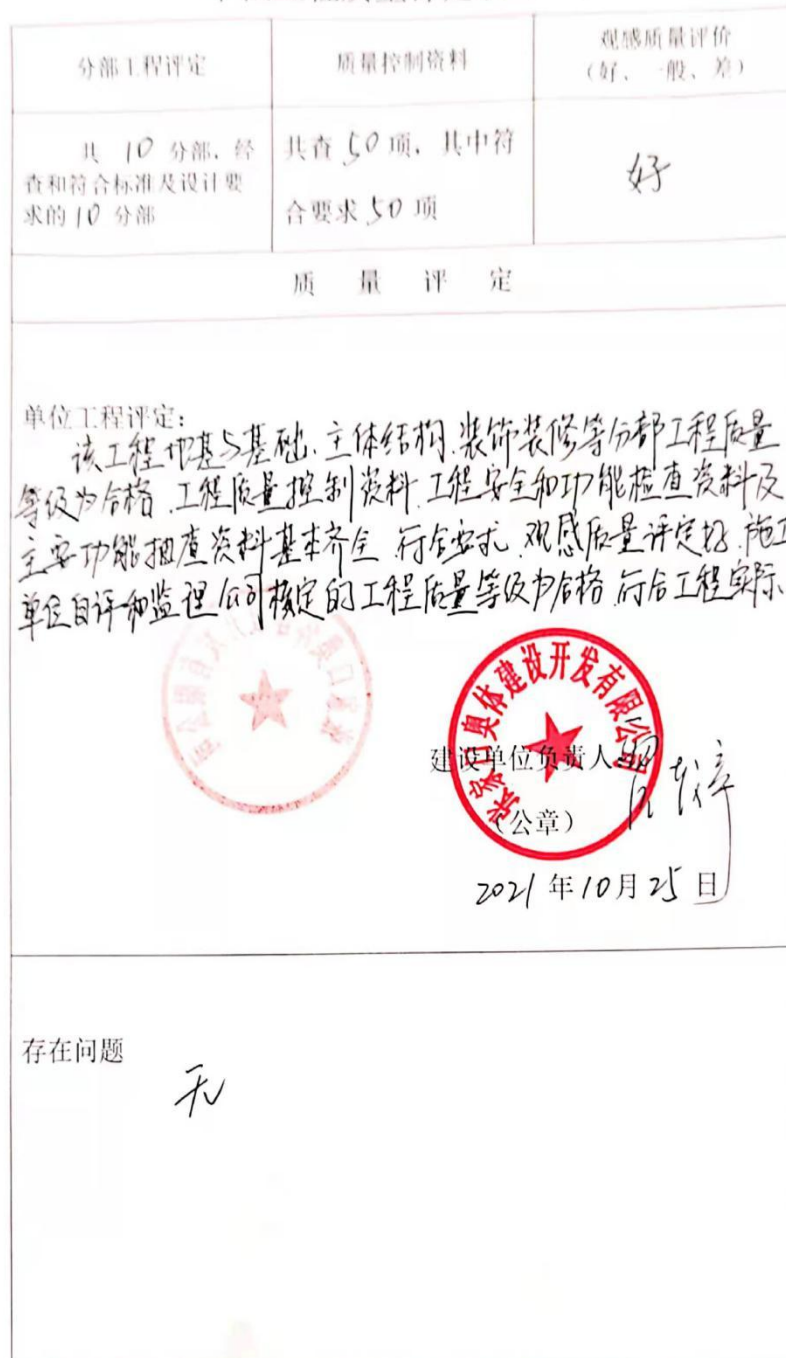 分部工程评定
质量控制资料
观感质量评价
（好、一般、差）
共 10 分部，经
查和符合标准及设计要
求的 10 分部
共查 50 项，其中符
合要求 50 项
好
质 量 评 定
单位工程评定：
该工程地基与基础、主体结构、装饰装修等分部工程质量
等级为合格，工程质量控制资料、工程安全和功能检查资料及
主要功能抽查资料基本齐全，符合要求，观感质量评定好，施工
单位自评和监理公司核定的工程质量等级为合格，符合工程实际、
张家口奥体建设开发有限公司
建设单位负责人
（公章）
2021 年 10 月 25 日
存在问题
无